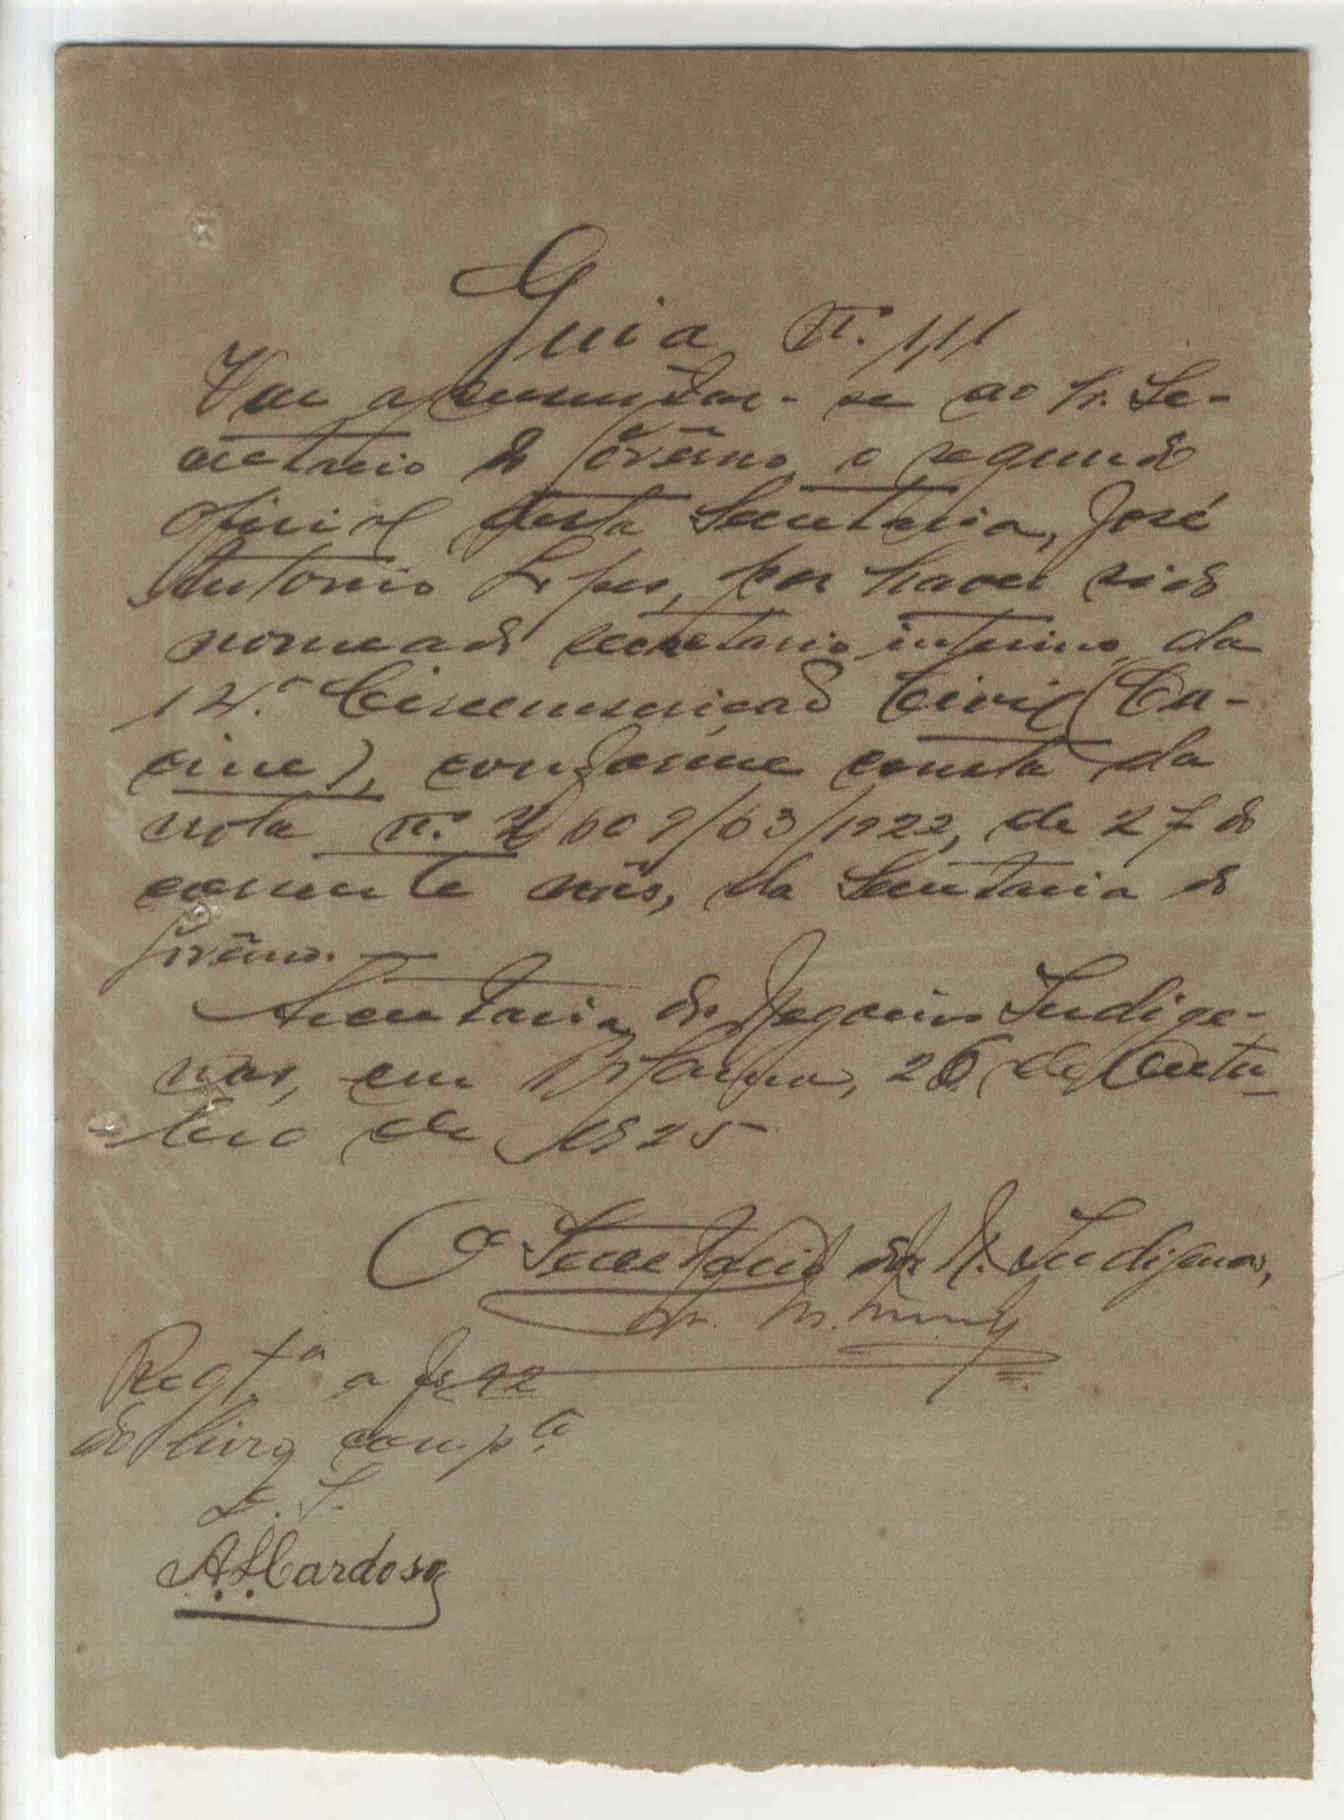 Guia nº. 111
Vae apresentar-se ao Sr. Se-
cretario do Govêrno, o segundo
oficial desta Secretaria, José
Antonio Lopes, por haver sido
nomeado secretario interino da
14.ª Circunscrição Civil (Ca-
cine), conforme consta da
nota nº. 609/63/1922, de 27 do
corrente mês, da Secretaria do
Govêrno.
Secretaria dos Negocios Indige-
nas, em Bolama, 28 de Outu-
bro de 1925
O Secretario dos N. Indigenas,
Regt.ª a fs. 42
do livro comp.te
A. S. Cardoso